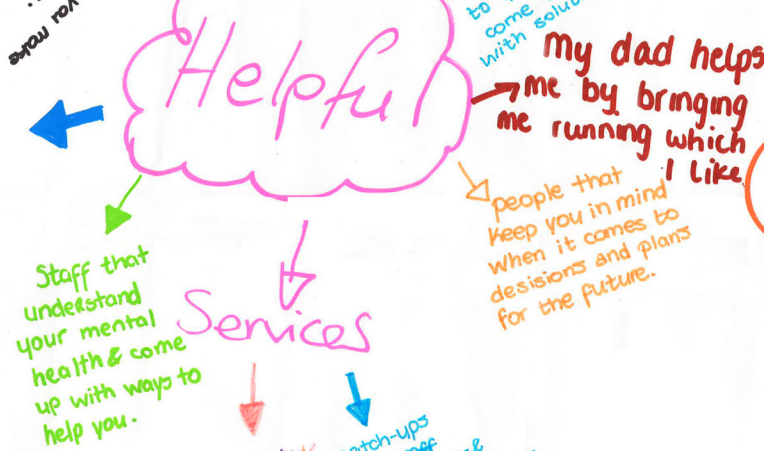 you make
to
come
with solut
Helpful
My dad helps
me by bringing
me running which
I like
people that
keep you in mind
when it comes to
desisions and plans
for the future.
Staff that
understand
your mental
health & come
up with ways to
help you.
Services
catch-ups
&